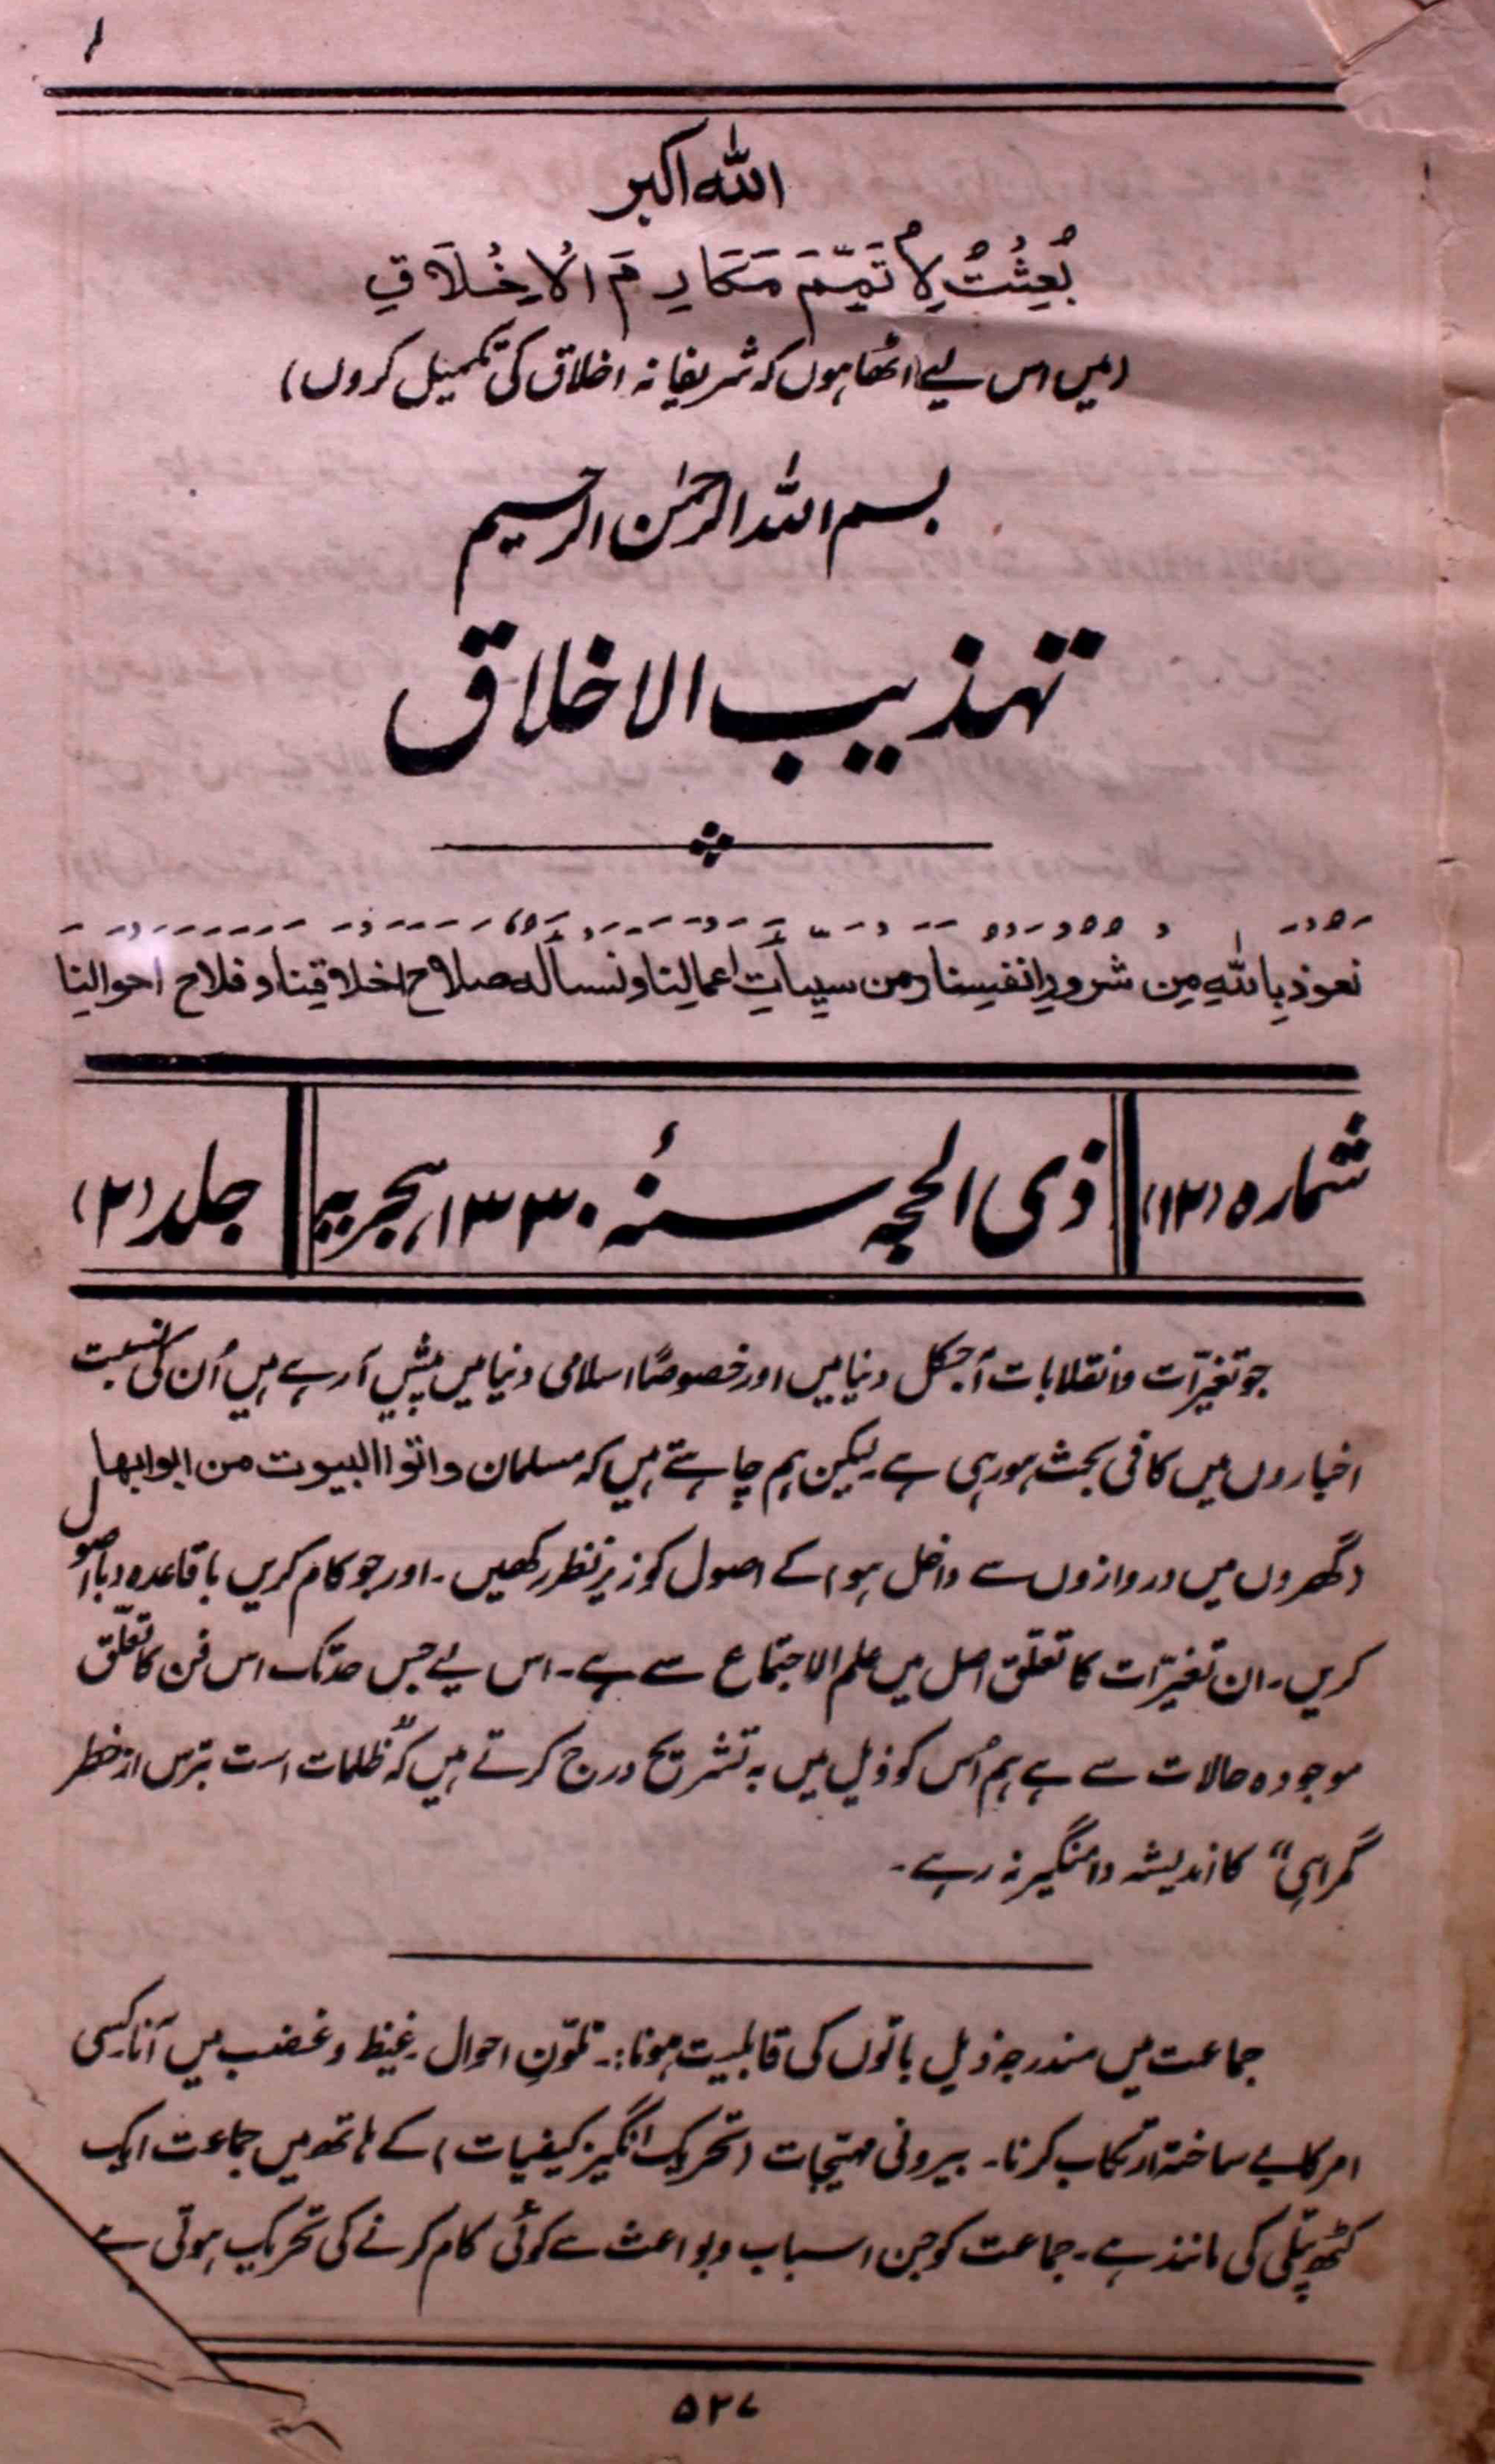 ۱
اللہ اکبر
بُعِثْتُ لِأُتَمِّمَ مَكَارِمَ الْاَخْلَاقِ
(میں اس لیے اٹھا ہوں کہ شریفانہ اخلاق کی تکمیل کروں)
بسم اللہ الرحمٰن الرحیم
تہذیب الاخلاق
نعوذ باللہ من شرور انفسنا ومن سیاٰت اعمالنا ونسألہ صلاح اخلاقنا وفلاح احوالنا
شمارہ (۱۲) ذی الحجہ سنہ ۱۳۳۰ ہجریہ جلد (۲)
جو تغیّرات و انقلابات آجکل دنیا میں اور خصوصًا اسلامی دنیا میں پیش آرہے ہیں اُن کی نسبت
اخباروں میں کافی بحث ہو رہی ہے۔ لیکن ہم چاہتے ہیں کہ مسلمان واتوا البیوت من ابوابہا
(گھروں میں دروازوں سے داخل ہو) کے اصول کو زیر نظر رکھیں۔ اور جو کام کریں باقاعدہ و بااصول
کریں۔ ان تغیّرات کا تعلّق اصل میں علم الاجتماع سے ہے۔ اس لیے جس حد تک اس فن کا تعلّق
موجودہ حالات سے ہے ہم اُس کو ذیل میں بہ تشریح درج کرتے ہیں کہ "ظلمات است بترس از خطر
گمراہی" کا اندیشہ دامنگیر نہ رہے۔
جماعت میں مندرجہ ذیل باتوں کی قابلیت ہونا:۔ تلوّنِ احوال۔ غیظ و غضب میں آنا۔ کسی
امر کا بے ساختہ ارتکاب کرنا۔ بیرونی مہیّجات (تحریک انگیز کیفیات) کے ہاتھ میں جماعت ایک
کٹھ پتلی کی مانند ہے۔ جماعت کو جن اسباب و بواعث سے کوئی کام کرنے کی تحریک ہوتی ہے
۵۲۷